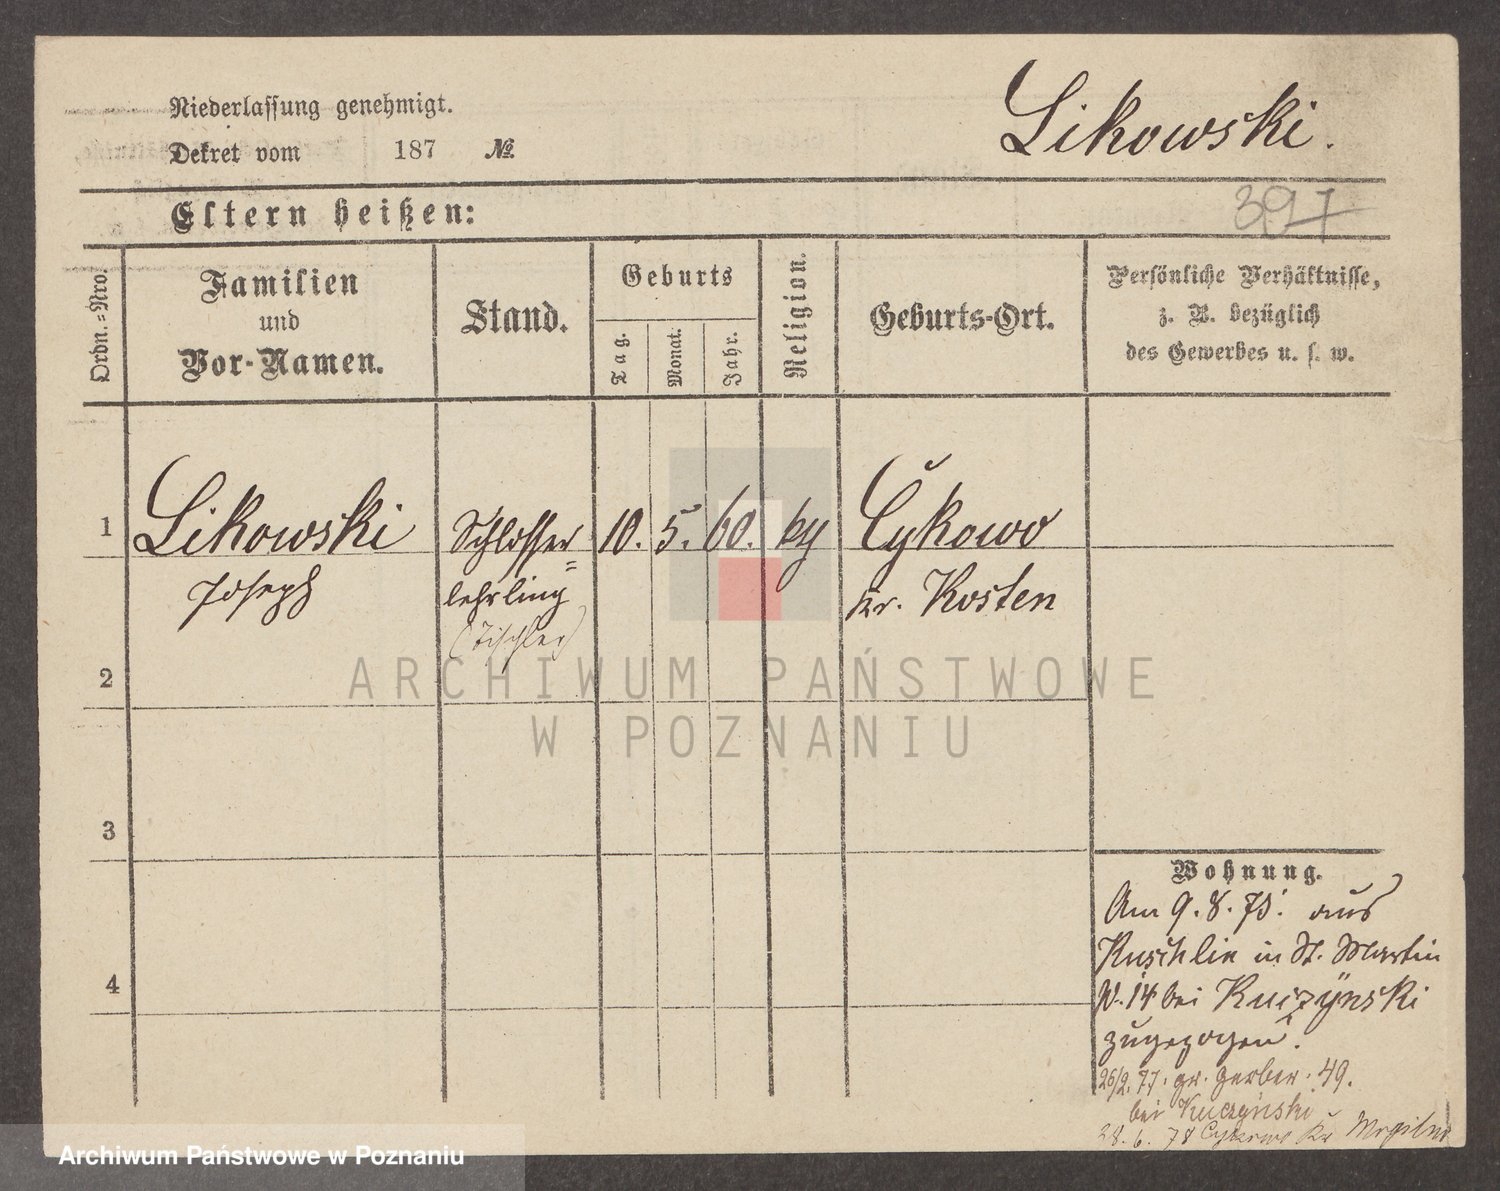 Likowski.
Niederlassung genehmigt.
Dekret vom 187 №
Eltern heißen:
397
Ordn.=Nro.
Familien
und
Vor-Namen.
Stand.
Geburts
Tag.
Monat.
Jahr.
Religion.
Geburts-Ort.
Persönliche Verhältnisse,
z. B. bezüglich
des Gewerbes u. s. w.
1 Likowski Schlosser= 10. 5. 60. Cykowo
Joseph lehrling Kr. Kosten
(Tischler)
2
ARCHIWUM PAŃSTWOWE
W POZNANIU
3
4
Wohnung.
Am 9. 8. 75. aus
Kuschlin in St. Martin
N. 14 bei Kuczynski
zugezogen.
26/2. 77. gr. Gerber. 49.
bei Kuczynski
28. 6. 78 Cykowo Kr
Archiwum Państwowe w Poznaniu